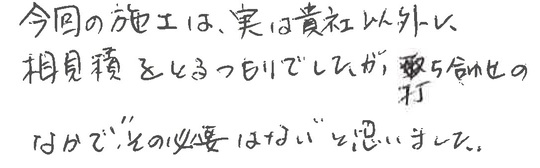 今回の施工は、実は貴社以外に、
相見積をとるつもりでしたが、打ち合わせの
なかで“その必要はない”と思いました。